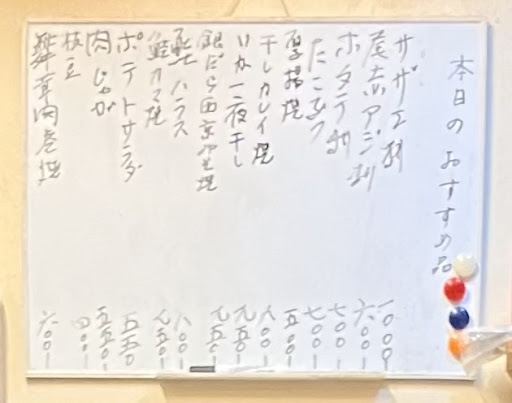 本日のおすすめ品
サザエ刺 一〇〇〇
尾赤アジ刺 六〇〇
ホタテ刺 七〇〇
たこぶつ 七〇〇
厚揚焼 五〇〇
干しカレイ焼 八〇〇
いか一夜干し 九五〇
銀だら西京みそ焼 九五〇
鮭ハラス 八〇〇
鮭カマ焼 九五〇
ポテトサラダ 五五〇
肉じゃが 五五〇
枝豆 四〇〇
舞茸肉巻焼 六〇〇